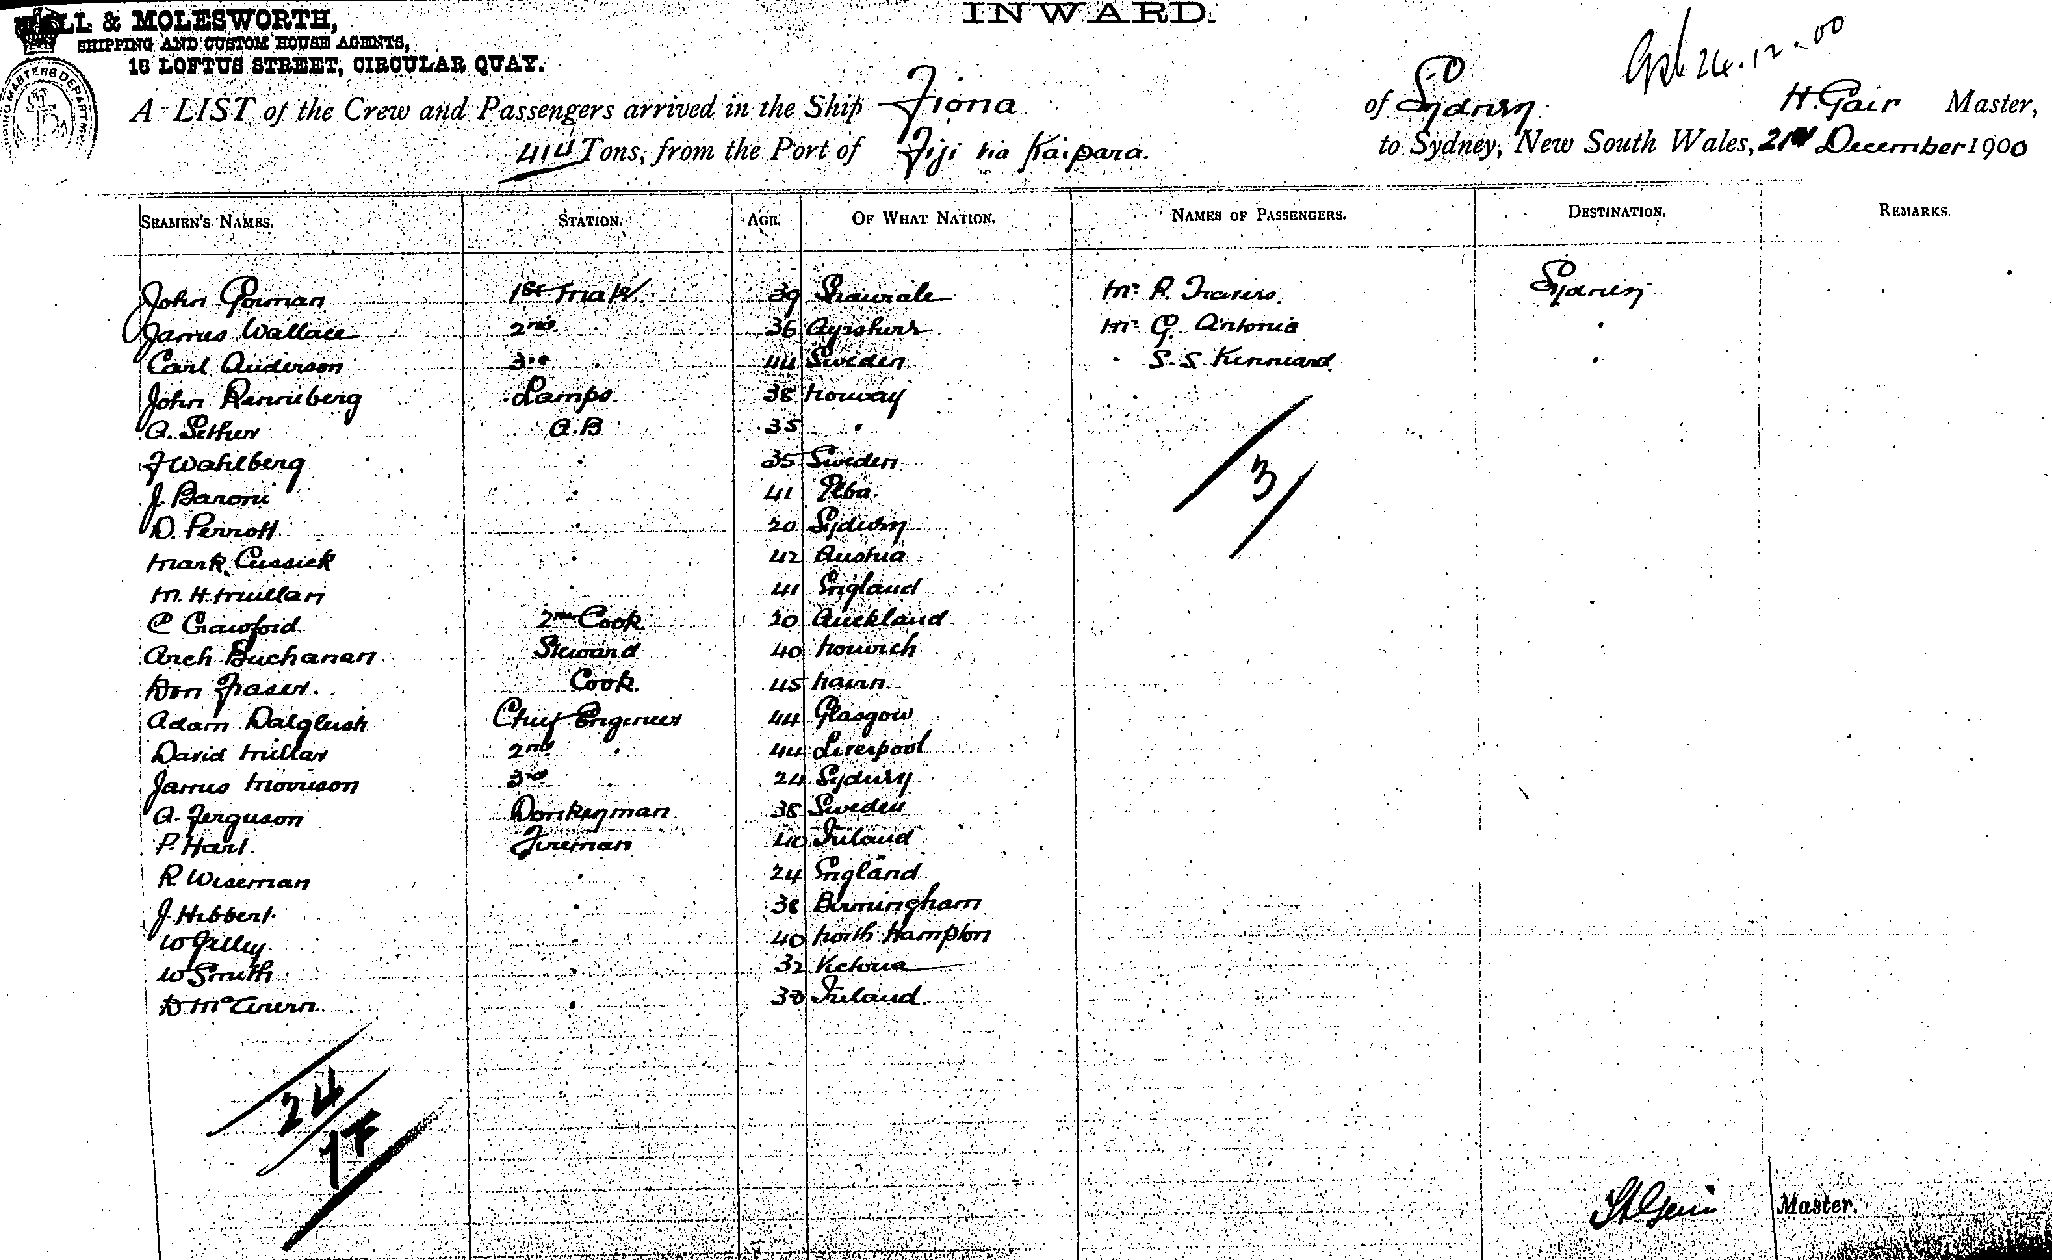 INWARD.
LL & MOLESWORTH,
SHIPPING AND CUSTOM HOUSE AGENTS,
16 LOFTUS STREET, CIRCULAR QUAY.
24.12.00
A LIST of the Crew and Passengers arrived in the Ship Fiona of Sydney H. Gair Master,
414 Tons, from the Port of Fiji via Kaipara. to Sydney, New South Wales, 21st December 1900
SEAMEN'S NAMES. STATION. AGE. OF WHAT NATION. NAMES OF PASSENGERS. DESTINATION. REMARKS.
John Gorman 1st Mate 39 Mr. R. Travers. Sydney
James Wallace 2nd 36 Ayrshire Mr. G. Antonio "
Carl Anderson 3rd 44 Sweden " S. S. Kenneard "
John Rennieberg Lamps 38 Norway
A. Sether A.B 35 "
F Wahlberg " 35 Sweden
J. Baroni " 41 Elba
D. Perrott " 20 Sydney
Mark Cussick " 42 Austria
M. H. Mullan " 41 England
C Crawford 2nd Cook 20 Auckland
Arch Buchanan Steward 40 Norwich
Don Fraser. Cook 45 Nairn
Adam Dalgleish Chief Engineer 44 Glasgow
David Millar 2nd " 44 Liverpool
James Morrison 3rd 24 Sydney
A. Ferguson Donkeyman 38 Sweden
P. Hart. Fireman 40 Ireland
R Wiseman " 24 England
J. Hibbert. " 38 Birmingham
W " 40 North Hampton
W Smith " 32 Victoria
D " Ireland
3
24
1F
H Gair Master.